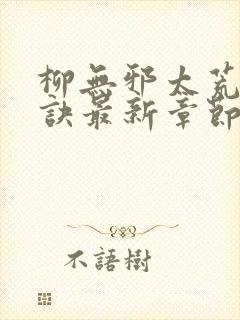 柳無邪太荒
訣最新章節
不語樹